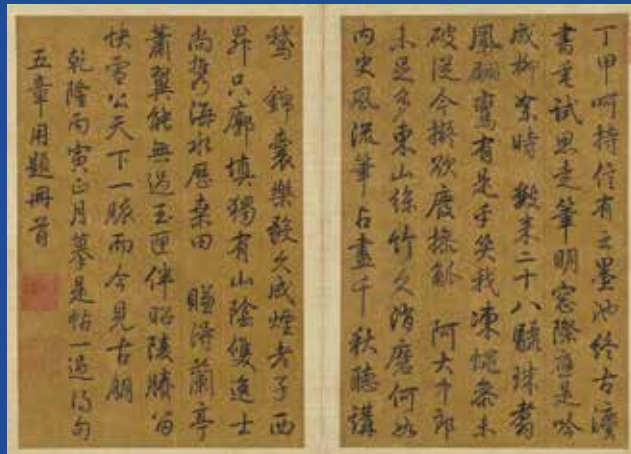 丁甲呵持信有之墨池終古
試思走筆明窗際應是吟
成柳絮時 數來二十八驪珠翥
鳳翩鸞有是乎笑我凍參未
破從今擬欲廢操觚 阿大中郎
未足多東山絲竹久消磨何如
內史風流筆占盡千秋聽講
鵞 錦囊樂毅久成煙老子西
昇只廓填獨有山陰雙逸士
尚携海水歷桑田 賺得蘭亭
蕭翼能無過玉匣伴昭陵賸留
快雪公天下一而今見古朋
乾隆丙寅正月摹是帖一過得句
五章用題冊首